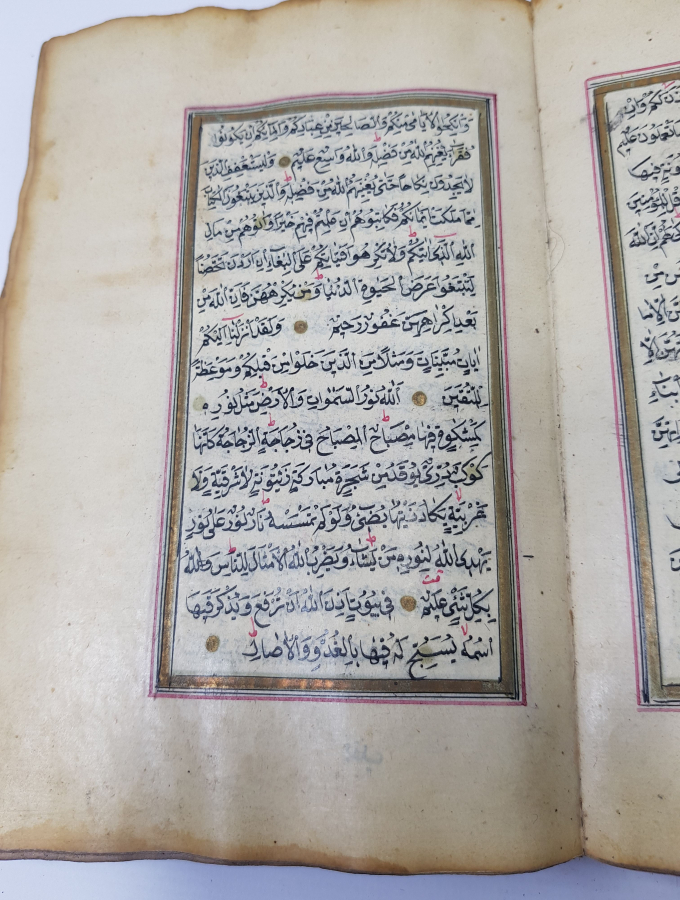 وَاَنْكِحُوا الْاَيَامٰى مِنْكُمْ وَالصَّالِحِيْنَ مِنْ عِبَادِكُمْ وَاِمَائِكُمْ اِنْ يَكُوْنُوْا
فُقَرَاءَ يُغْنِهِمُ اللّٰهُ مِنْ فَضْلِهِ وَاللّٰهُ وَاسِعٌ عَلِيْمٌ وَلْيَسْتَعْفِفِ الَّذِيْنَ
لَا يَجِدُوْنَ نِكَاحًا حَتّٰى يُغْنِيَهُمُ اللّٰهُ مِنْ فَضْلِهِ وَالَّذِيْنَ يَبْتَغُوْنَ الْكِتَابَ
مِمَّا مَلَكَتْ اَيْمَانُكُمْ فَكَاتِبُوْهُمْ اِنْ عَلِمْتُمْ فِيْهِمْ خَيْرًا وَاٰتُوْهُمْ مِنْ مَالِ
اللّٰهِ الَّذِيْ اٰتَاكُمْ وَلَا تُكْرِهُوْا فَتَيَاتِكُمْ عَلَى الْبِغَاءِ اِنْ اَرَدْنَ تَحَصُّنًا
لِتَبْتَغُوْا عَرَضَ الْحَيٰوةِ الدُّنْيَا وَمَنْ يُكْرِهْهُنَّ فَاِنَّ اللّٰهَ مِنْ
بَعْدِ اِكْرَاهِهِنَّ غَفُوْرٌ رَحِيْمٌ وَلَقَدْ اَنْزَلْنَا اِلَيْكُمْ
اٰيَاتٍ مُبَيِّنَاتٍ وَمَثَلًا مِنَ الَّذِيْنَ خَلَوْا مِنْ قَبْلِكُمْ وَمَوْعِظَةً
لِلْمُتَّقِيْنَ اَللّٰهُ نُوْرُ السَّمٰوَاتِ وَالْاَرْضِ مَثَلُ نُوْرِهِ
كَمِشْكٰوةٍ فِيْهَا مِصْبَاحٌ اَلْمِصْبَاحُ فِيْ زُجَاجَةٍ اَلزُّجَاجَةُ كَاَنَّهَا
كَوْكَبٌ دُرِّيٌّ يُوْقَدُ مِنْ شَجَرَةٍ مُبَارَكَةٍ زَيْتُوْنَةٍ لَا شَرْقِيَّةٍ وَلَا
غَرْبِيَّةٍ يَكَادُ زَيْتُهَا يُضِيْءُ وَلَوْ لَمْ تَمْسَسْهُ نَارٌ نُوْرٌ عَلٰى نُوْرٍ
يَهْدِي اللّٰهُ لِنُوْرِهِ مَنْ يَشَاءُ وَيَضْرِبُ اللّٰهُ الْاَمْثَالَ لِلنَّاسِ وَاللّٰهُ
بِكُلِّ شَيْءٍ عَلِيْمٌ فِيْ بُيُوْتٍ اَذِنَ اللّٰهُ اَنْ تُرْفَعَ وَيُذْكَرَ فِيْهَا
اسْمُهُ يُسَبِّحُ لَهُ فِيْهَا بِالْغُدُوِّ وَالْاٰصَالِ